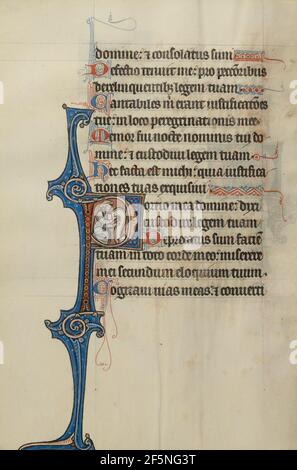 domine: & consolatus sum
Defectio tenuit me: pro peccatoribus
derelinquentibus legem tuam
Cantabiles m erant iustificationes
tue: in loco peregrinationis mee
Memor fui nocte nominis tui do
mine: & custodiui legem tuam
Hec facta est michi: quia iustifica
tiones tuas exquisiui
Portio mea domine: dixi
custodire legem tuam
Deprecatus sum faciem
tuam in toto corde meo: miserere
mei secundum eloquium tuum
Cogitaui uias meas: & conuerti
alamy
Image ID: 2F5NG3T
www.alamy.com